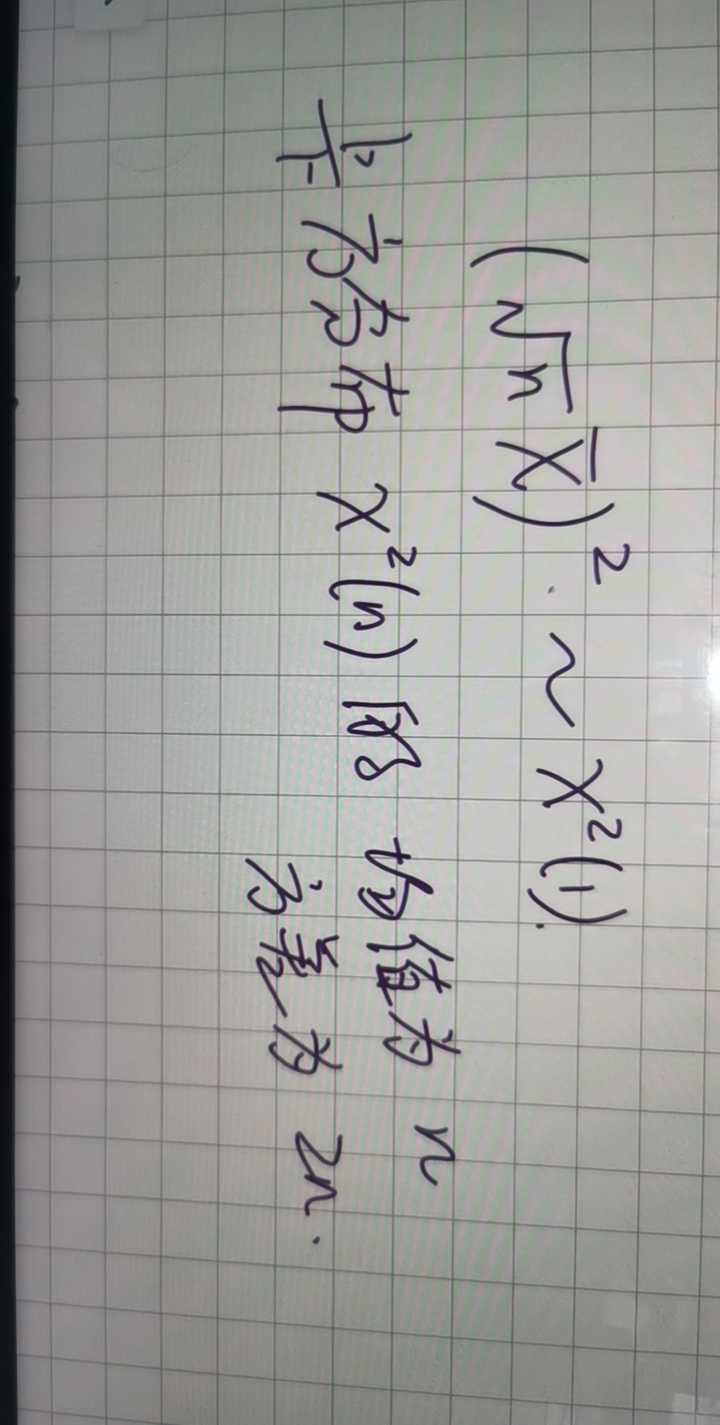 (√n X̄)² ~ χ²(1).
卡方分布 χ²(n) 的 均值为 n
方差为 2n.